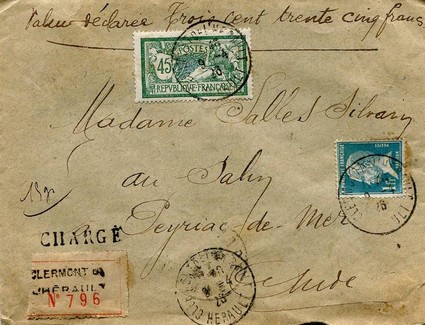 Valeur déclarée Trois cent trente cinq francs
45
POSTES
REPUBLIQUE FRANÇAISE
Madame Salles Silvain
au Salin
Peyriac-de-Mer
Aude
CHARGÉ
CLERMONT
L'HÉRAULT
N° 796
HERAULT